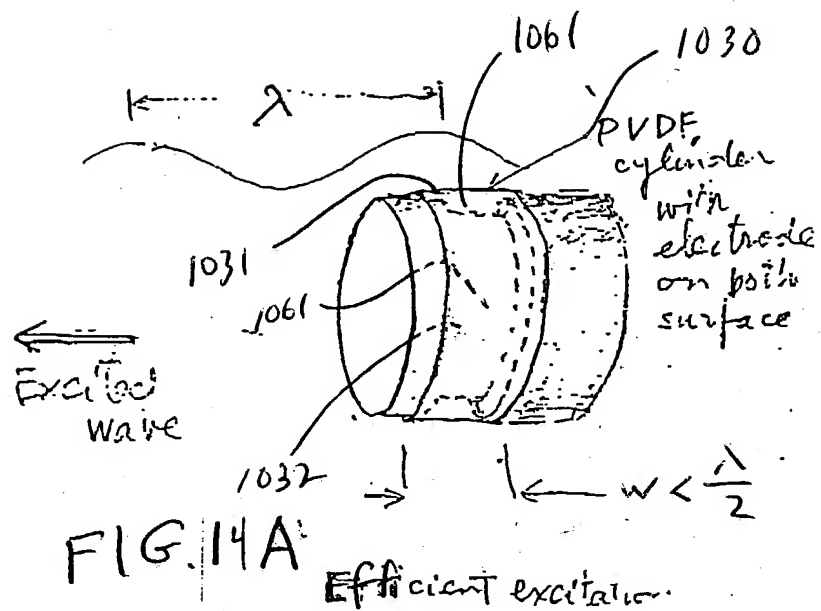 1061
1030
λ
PVDF
cylinder
with
electrode
on both
surface
1031
1061
Excited
wave
1032
w < λ/2
FIG. 14A
Efficient excitation